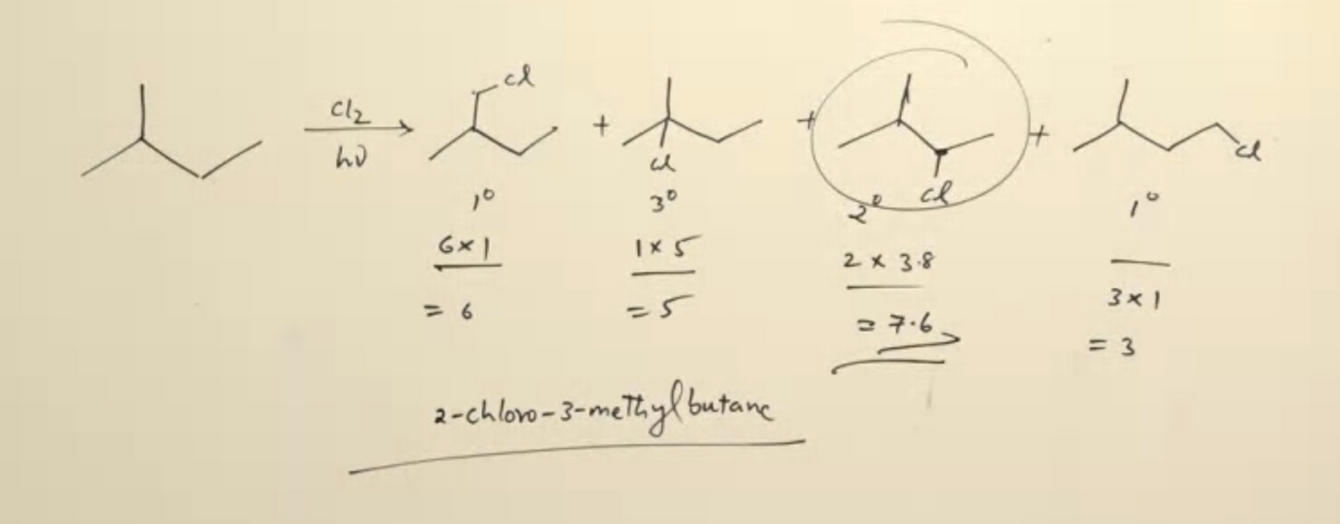 Cl2
hν
Cl
+
Cl
+
Cl
+
Cl
1°
3°
2°
1°
6×1
= 6
1 × 5
= 5
2 × 3.8
= 7.6
3×1
= 3
2-chloro-3-methylbutane